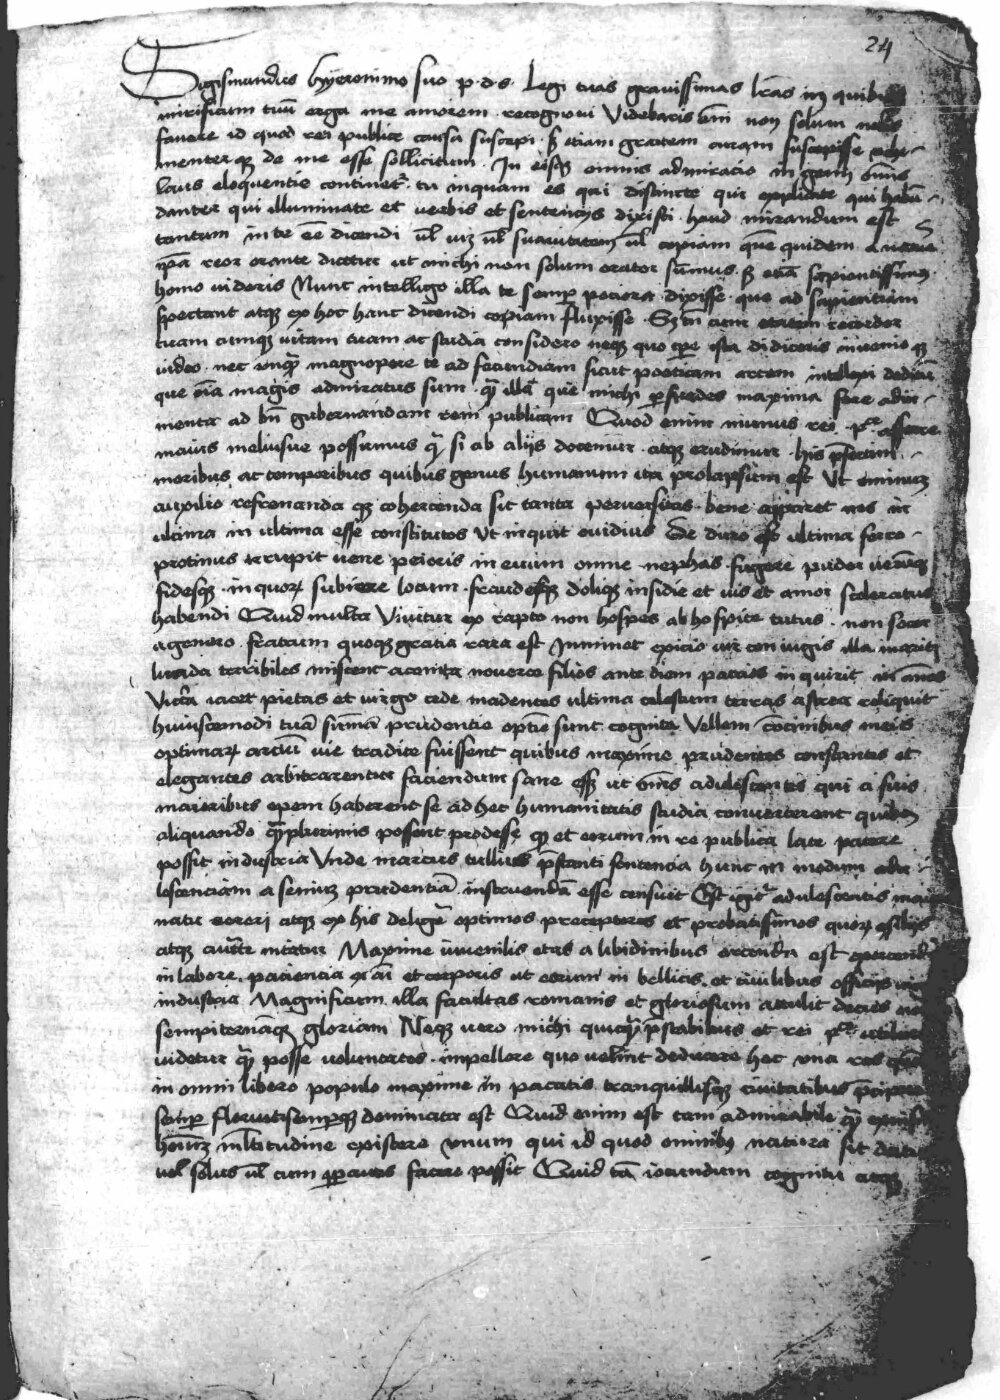 24
Sigismundus hyeronimo suo p. d. s. Legi tuas gravissimas lras in quibus
mirificum tuu erga me amorem recognoui Videbaris eni non solum
fauere id quod rei publice causa suscepi. sz etiam grauem curam suscepisse
menterqz de me esse sollicitum. In eisqz omnis admiracio ingens
laus eloquentie continet. tu inquam es qui distincte qui explicate qui habu-
danter qui illuminate et verbis et sentencijs dixisti. haud mirandum est
tantum in te ee dicendi ul uiz ul suauitatem ul copiam que quidem
reor orante dicetur ut michi non solum orator sumus. sz etia sapientissimus
homo uideris Nunc intelligo illa te semp pociora dixisse. que ad sapientiam
spectant atqz ex hoc hanc dicendi copiam fluxisse. Sz tn cum etatem recordor
tuam cumqz uitam tuam ac studia considero neqz quo tpe ista didiceris inuenio qz
uideo. nec unqz magnopere te ad fecundiam sicut poeticam artem intellexi
que oia magis admiratus sum. qz illa que michi maxima fore adiu-
menta ad bn gubernandam rem publicam Quod enim munus rei. afferre
maius meliusue possumus qz si ab alijs docemur. atqz erudimur. his psertim.
moribus ac temporibus quibus genus humanum ita prolapsum est Ut omniuz
auxilio refrenanda qz cohercenda sit tanta peruersitas. bene apparet nos in
ulcima in ultima esse constitutos Ut inquit ouidius De duro est ultima ferro.
protinus irrupit uene peioris in euum omne nephas. fugere pudor uerumqz
fidesqz. in quor subiere locum. fraudesqz doliqz insidie et uis et amor sceleratus
habendi Quid multa Viuitur ex rapto non hospes ab hospite tutus. non socer
a genero. fratrum quoqz gratia rara est Imminet exicio uir coniugis illa mariti
lurida terribiles miscent aconita nouerce filios ante diem patrios inquirit in annos
Victa iacet pietas et uirgo cede madentes ultima celestum terras astrea reliquit
huiuscemodi tua suma prudentie optie sunt cognita Vellem meis
optimar arciu uie tradite fuissent quibus maxime prudentes constantes et
elegantes arbitrarentur faciendum sane esset ut oms adulescentes qui a suis
maioribus opem haberent se ad hec humanitatis studia conuerterent quibus
aliquando qzplurimis possent prodesse qz et eorum in re publica late patere
possit industria Unde marcus tullius pstanti sentencia hunc in modum adu-
lescenciam a seniuz prudentia instruenda esse censuit Est igit adulescentis maiores
natu uereri atqz ex his deligere optimos preceptores et probatissimos quor
atqz nitatur Maxime iuuenilis etas a libidinibus arcenda est
in labore. paciencia qz ai et corporis ut eorum in bellicis. et ciuilibus officijs
industria Magnificum illa facultas romanis et gloriosum attulit decus
sempiternamqz gloriam Neqz uero michi quicqz pstabilius et rei
videtur qz posse voluntates. impellere quo uelint deducere hec una res
in omni libero populo maxime in pacatis tranquillisqz ciuitatibus
semp floruit sempqz dominata est Quid enim est tam admirabile qz
hoiuz mltitudine existere vnum qui id quod omnibus natura sit
uel solus ul cum perpaucis facere possit Quid ta iocundum cognitu atqz